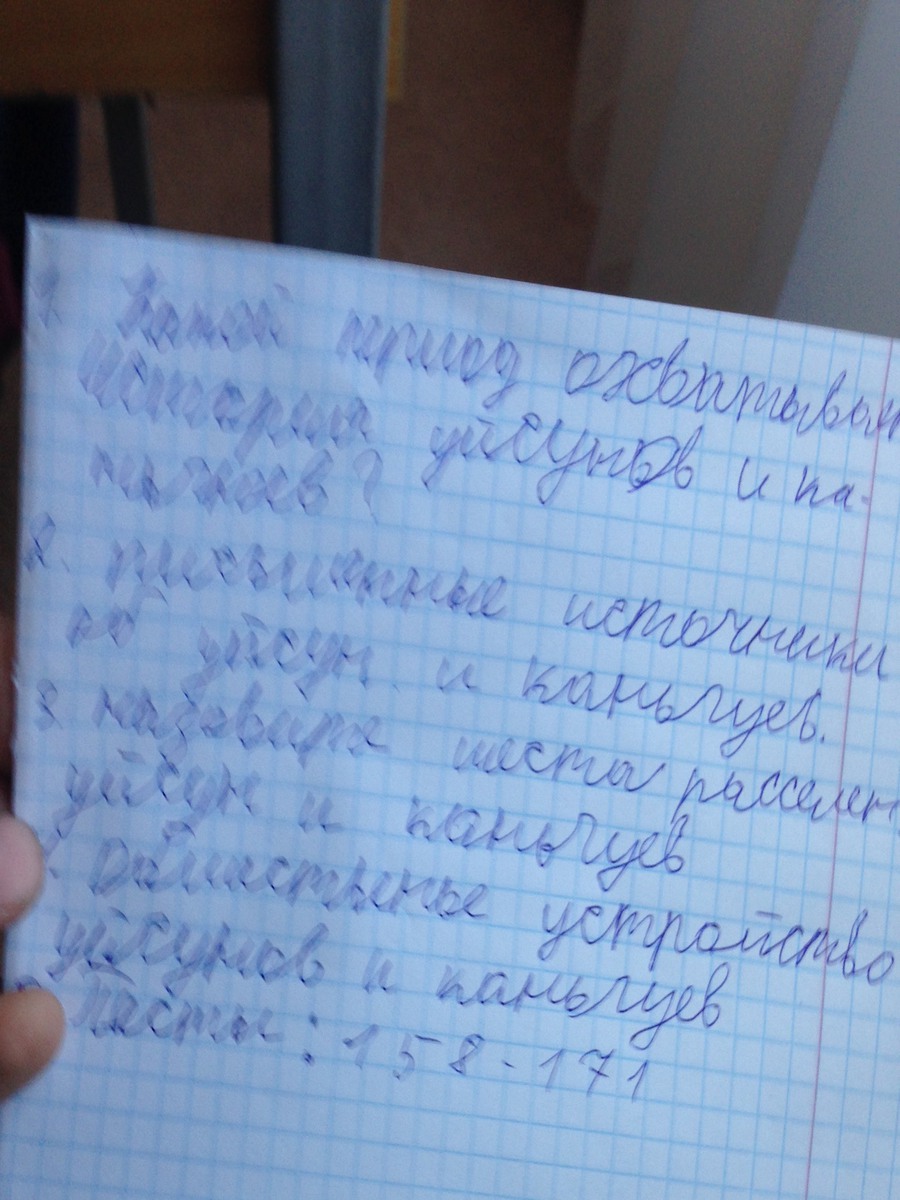 1. Какой период охватывает
История уйсунов и ка-
нгюев?
2. письменные источники
об уйсун. и каньгуев.
3. назовите места расселен
уйсун и каньгуев
устройство
уйсунов и каньгуев
Тесты: 158-171